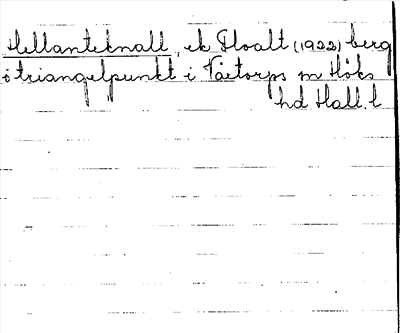 Hellanteknall, ek Tloalt (1922) berg
o triangelpunkt i Våxtorps sn Höks
hd Hall. l